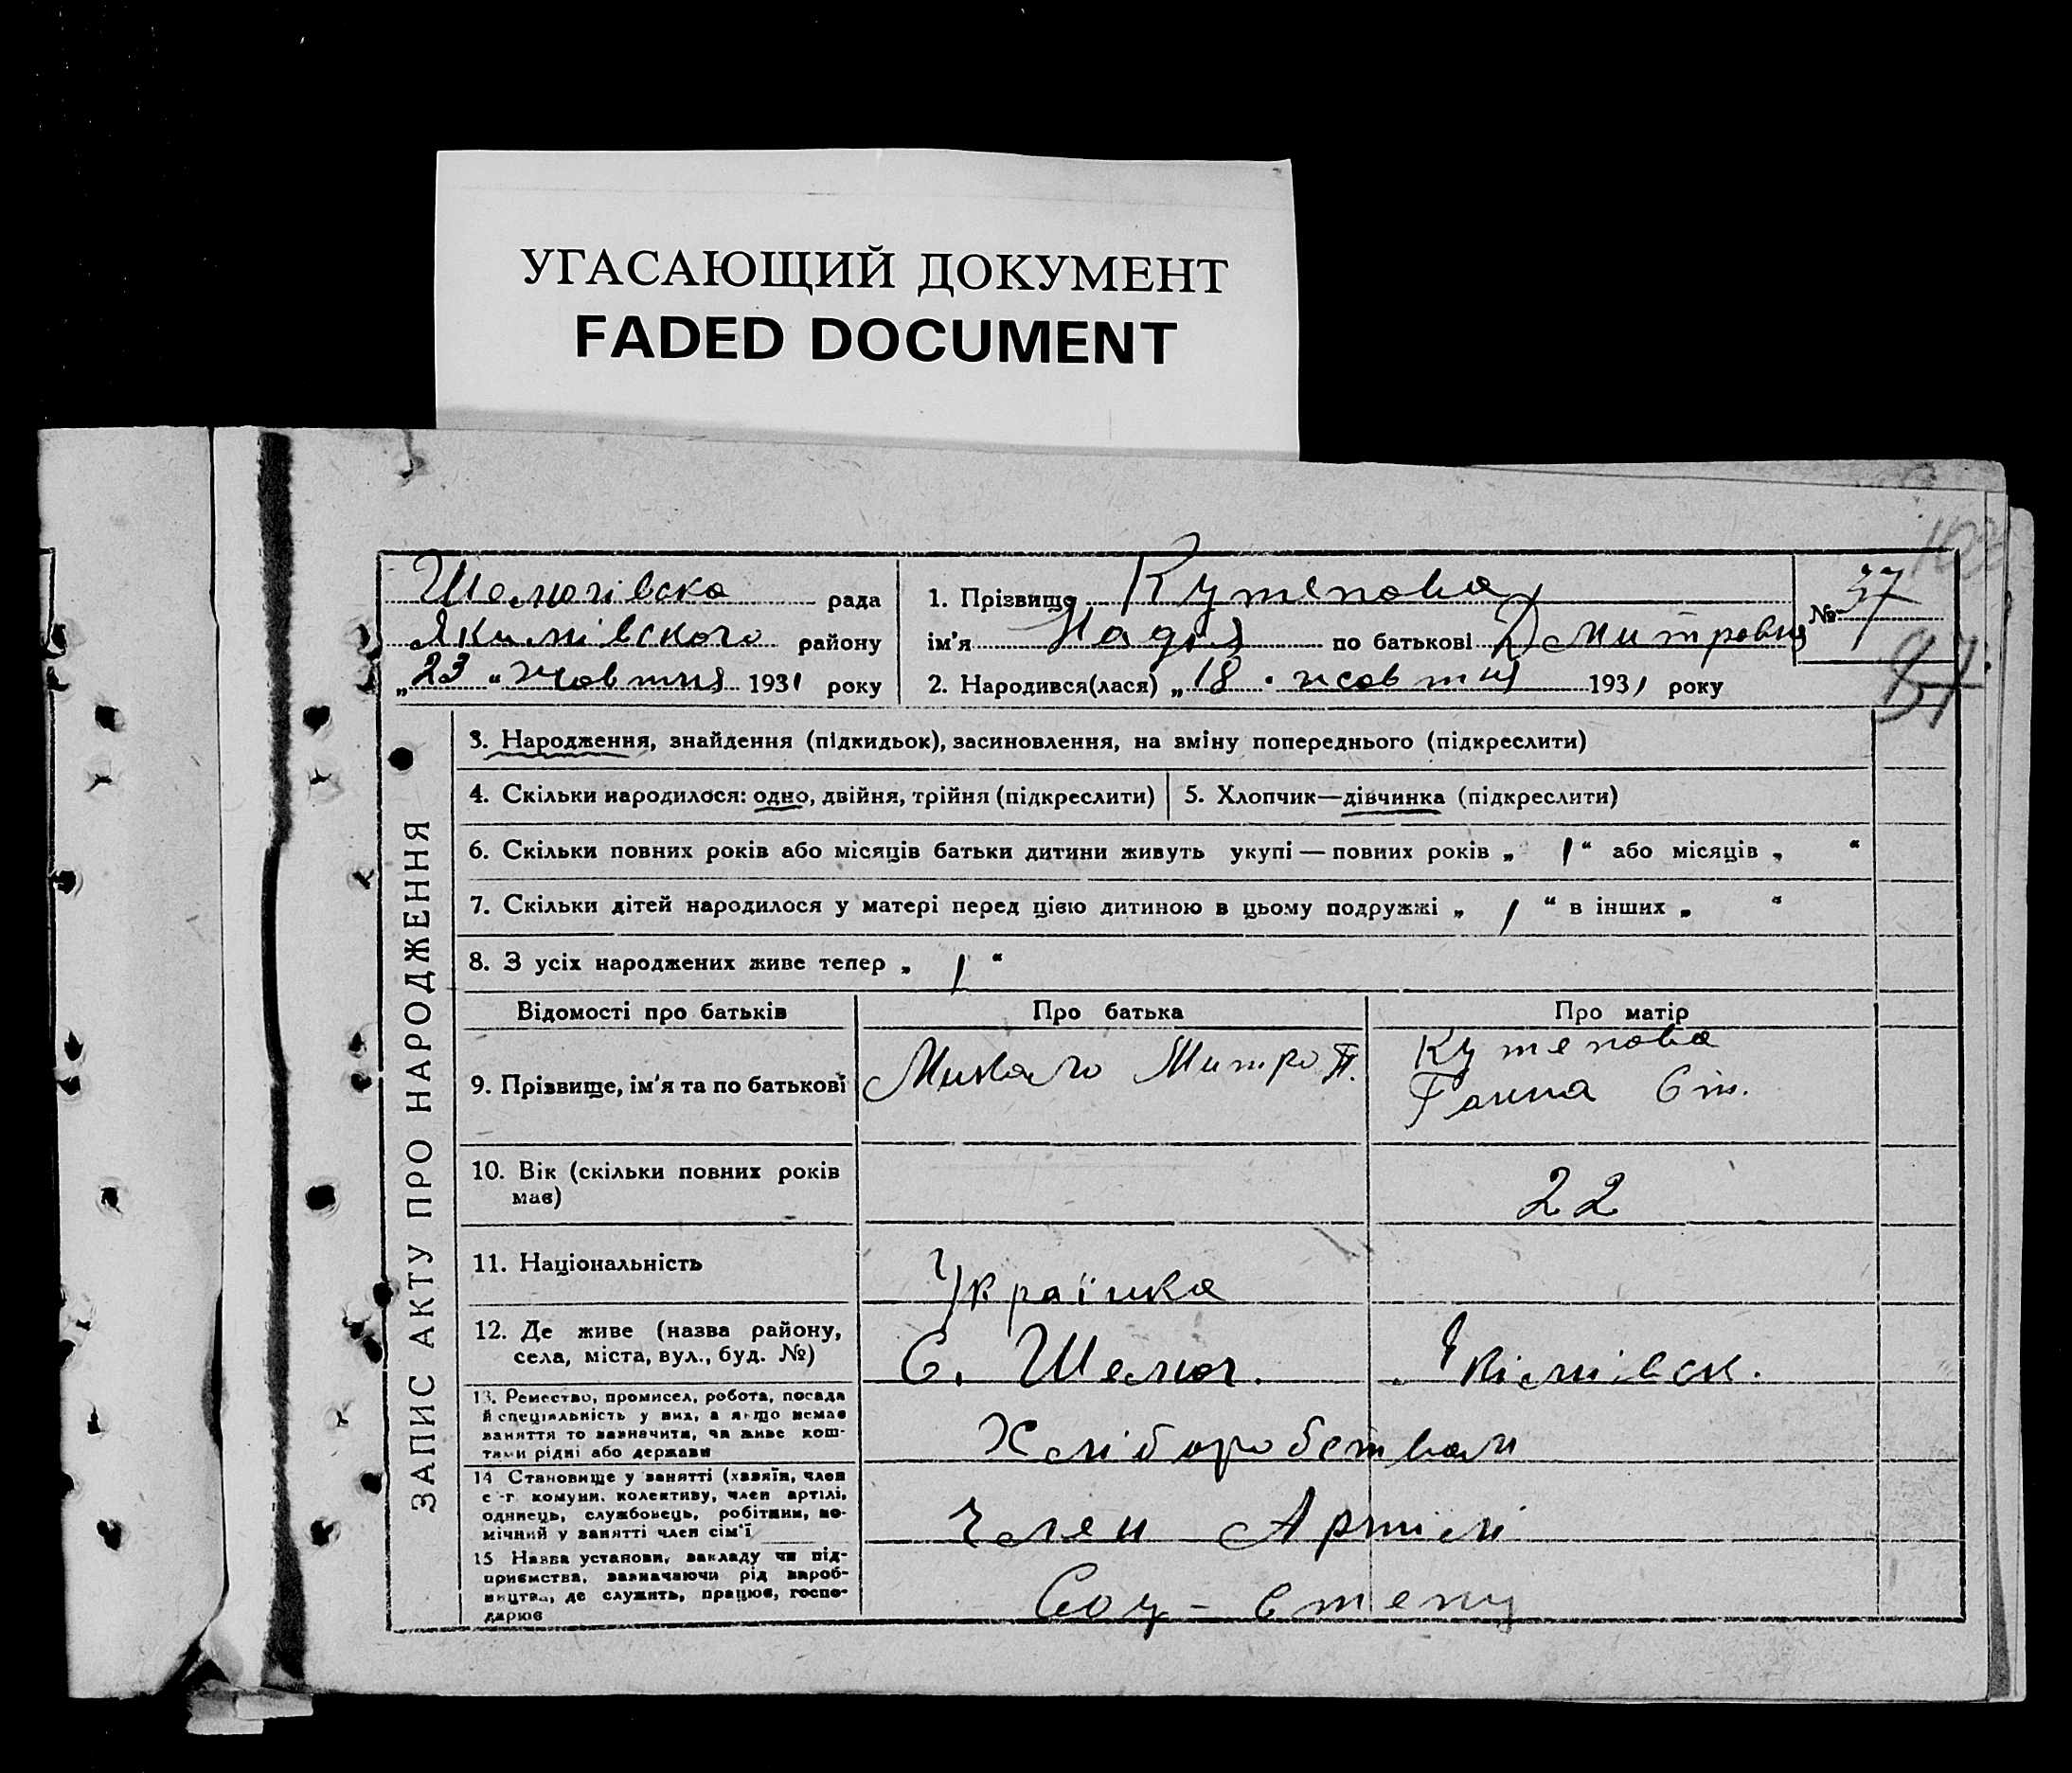 УГАСАЮЩИЙ ДОКУМЕНТ
FADED DOCUMENT
Шелюгівська рада
Якимівського району
„23“ жовтня 1931 року
1. Прізвище Кутепова
ім'я Надія по батькові Дмитровня
2. Народився(лася) „18. жовтня 1931 року
№ 37
ЗАПИС АКТУ ПРО НАРОДЖЕННЯ
3. Народження, знайдення (підкидьок), засиновлення, на вміну попереднього (підкреслити)
4. Скільки народилося: одно, двійня, трійня (підкреслити)
5. Хлопчик—дівчинка (підкреслити)
6. Скільки повних років або місяців батьки дитини живуть укупі — повних років „ 1 “ або місяців „ “
7. Скільки дітей народилося у матері перед цією дитиною в цьому подружжі „ 1 “ в інших „ “
8. З усіх народжених живе тепер „ 1 “
Відомості про батьків
Про батька
Про матір
9. Прізвище, ім'я та по батькові
Кутепова
Ганна
10. Вік (скільки повних років має)
22
11. Національність
Українка
12. Де живе (назва району,
села, міста, вул., буд. №)
С. Шелюг. Якімівськ.
13. Ремество, промисел, робота, посада
й спеціяльність у них, а якщо немає
заняття то зазначити, чи живе кош-
тами рідні або держави
14 Становище у занятті (хазяїн, член
с.-г. комуни, колективу, член артілі,
одинець, службовець, робітник, по-
мічний у занятті член сім'ї
Член Артілі
15 Назва установи, закладу чи під-
приємства, зазначаючи рід вироб-
ництва, де служить, працює, госпо-
дарює
Соц - степу